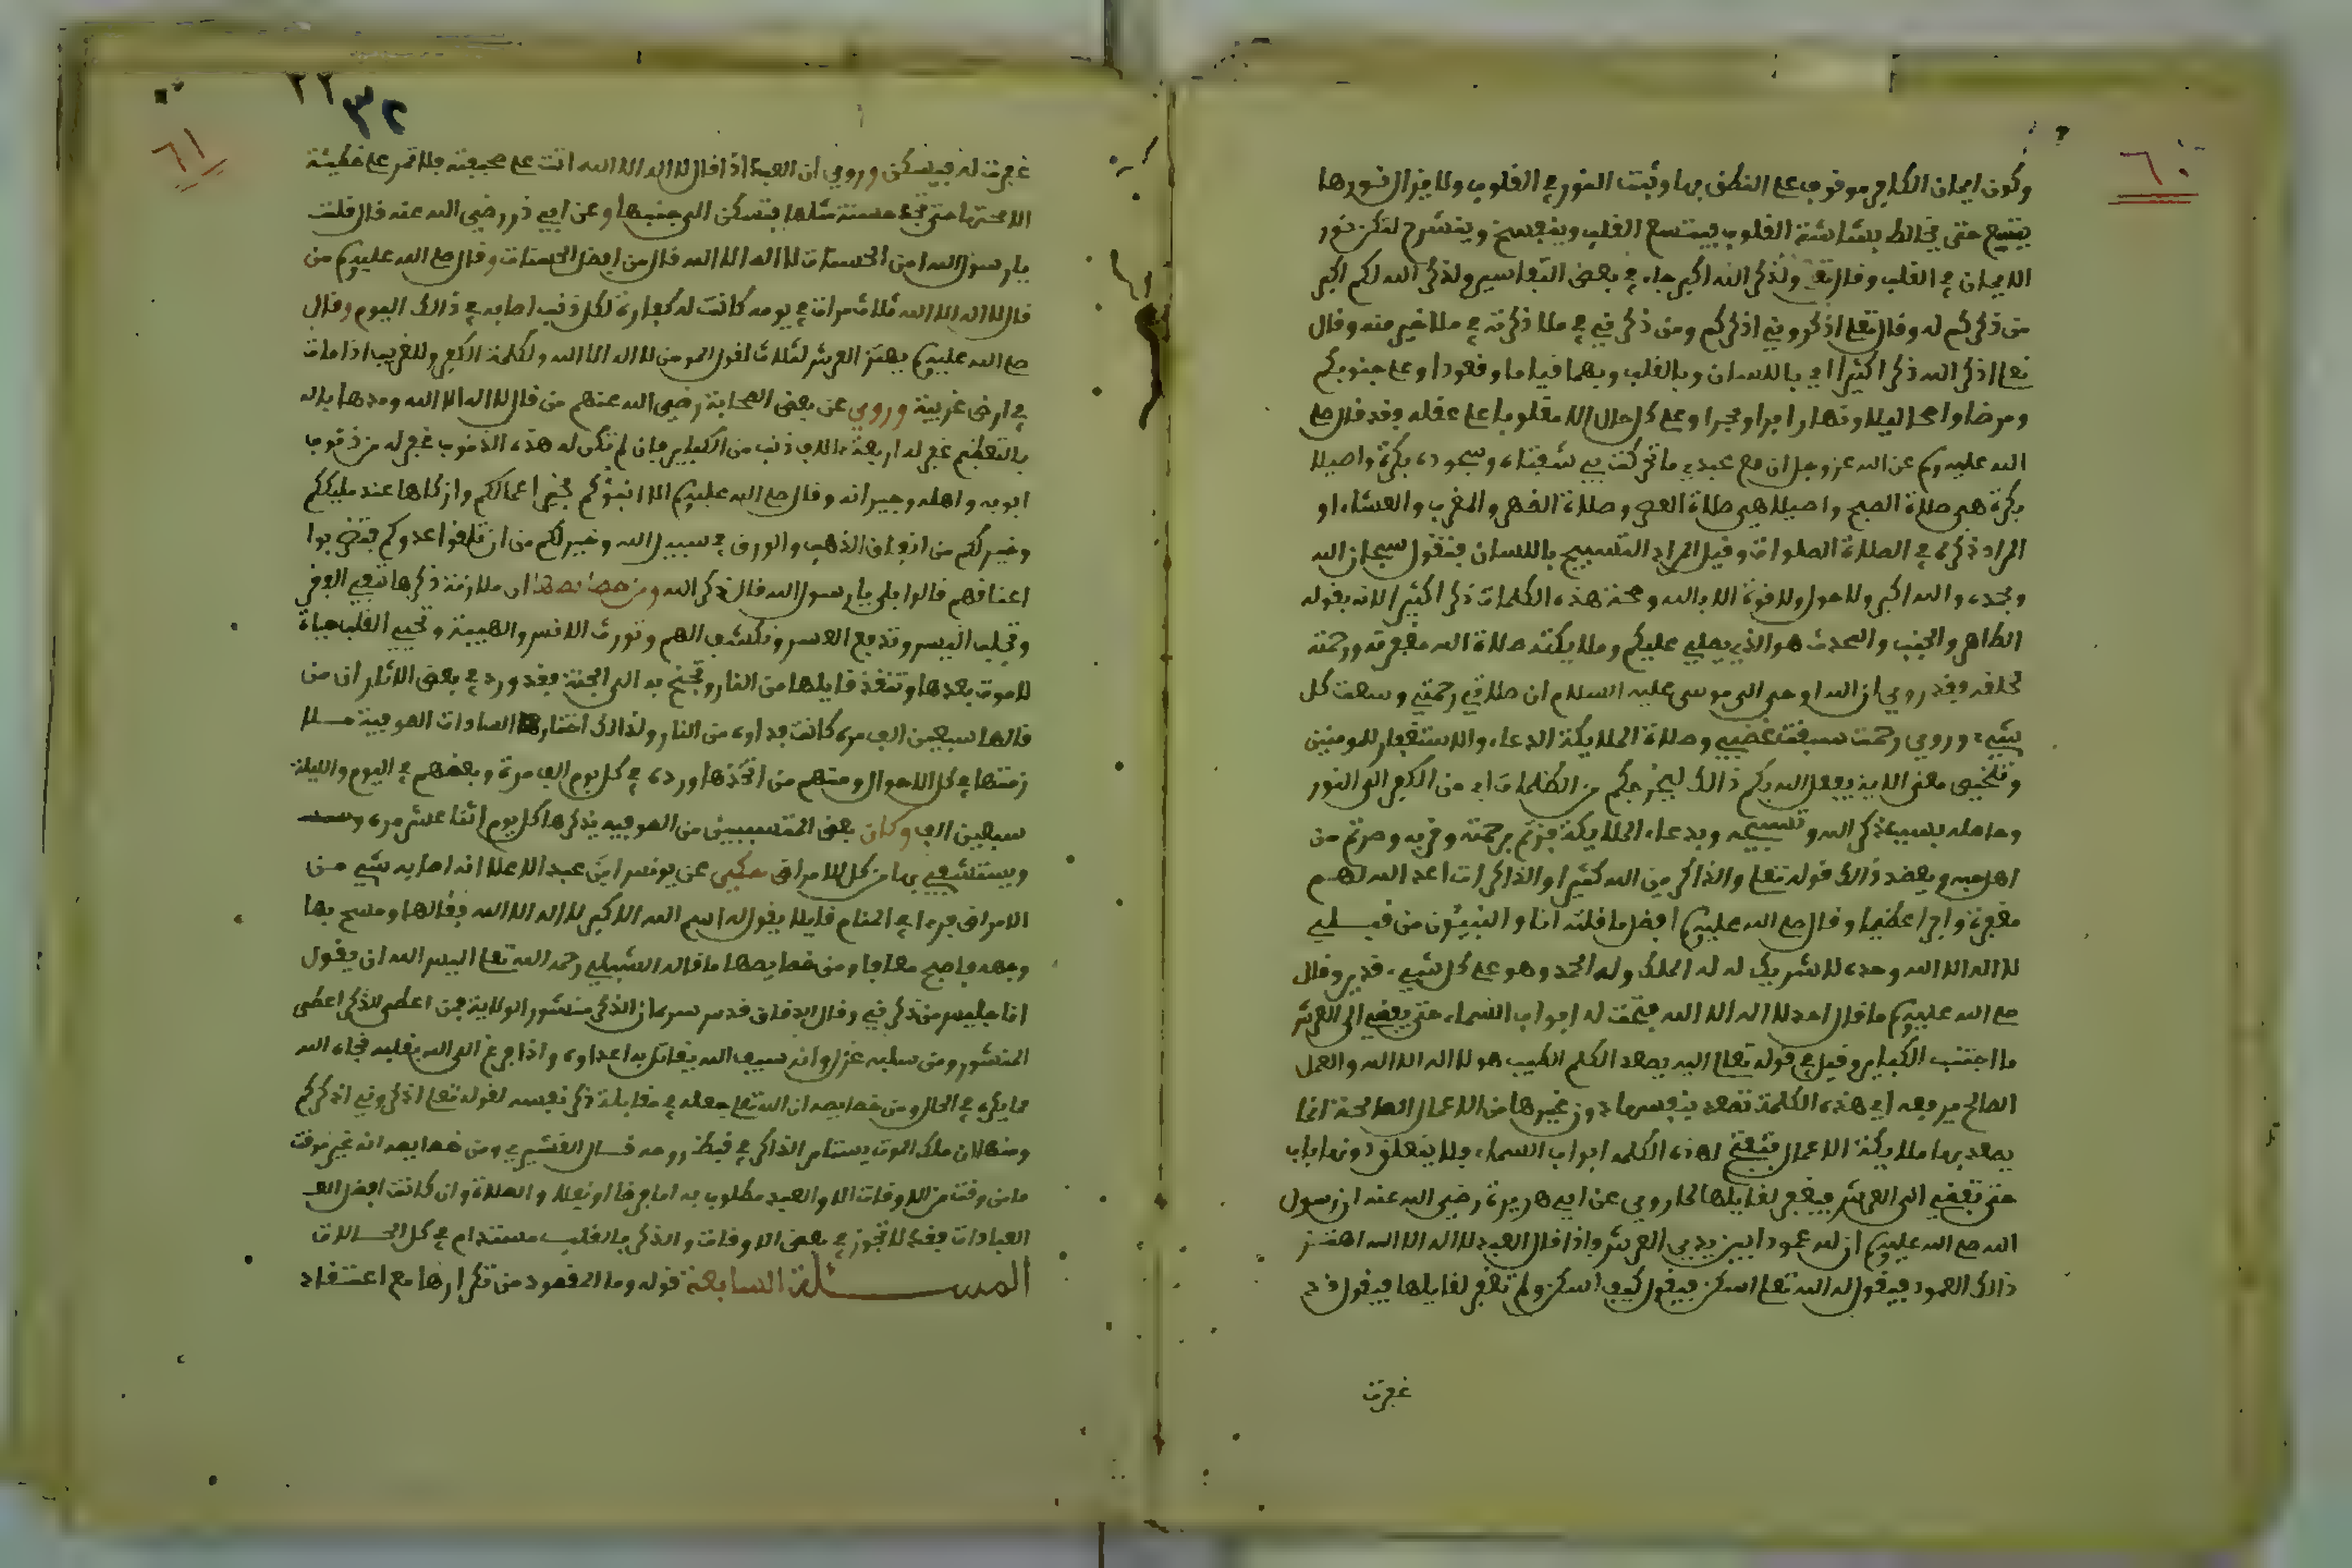 ٦٠
وكون ايمان الكافر موقوف على النطق بها وثبت النور في القلوب ولا يزال نورها
يتسع حتى يخالط بشاشة القلوب فيتسع القلب وينفسح وينشرح لتمكن نور
الايمان في القلب وقال تعلى ولذكر الله اكبر جاء في بعض التفاسير ولذكر الله لكم اكبر
من ذكركم له وقال تعلى اذكروني اذكركم ومن ذكرني في ملا ذكرته في ملا خير منه وقال
تعلى اذكر الله ذكرا كثيرا اي باللسان وبالقلب وبهما قياما وقعودا وعلى جنوبكم
ومرضا واصحا ليلا ونهارا برا وبحرا وعلى كل حال الا مغلوبا على عقله وقد قال صلى
الله عليه وسلم عن الله عز وجل ان مع عبدي ما تحركت بي شفتاه وسبحوه بكرة واصيلا
بكرة هي صلاة الصبح واصيلا هي صلاة العصر وصلاة الظهر والمغرب والعشاء او
المراد ذكره في الصلاة الصلوات وقيل المراد التسبيح باللسان فتقول سبحان الله
وبحمده والله اكبر ولا حول ولا قوة الا بالله وصحة هذه الكلمات ذكرا كثيرا لانه يقوله
الطاهر والجنب والمحدث هو الذي يصلي عليكم وملايكته صلاة الله مغفرته ورحمته
لخلقه وقد روي ان الله اوحى الى موسى عليه السلام ان صلاتي رحمتي وسعت كل
شيء وروي رحمت سبقت غضبي وصلاة الملايكة الدعاء والاستغفار للمومنين
وتلخيص معنى الاية يفعل الله بكم ذالك ليخرجكم من الظلمات اي من الكفر الى النور
وحاصله بسبب ذكر الله وتسبيحه وبدعاء الملايكة فزتم برحمته وقربه وصرتم من
اهل حبه ويعضد ذالك قوله تعلى والذاكرين الله كثيرا والذاكرات اعد الله لهم
مغفرة واجرا عظيما وقال صلى الله عليه وسلم افضل ما قلته انا والنبيئون من قبلي
لا اله الا الله وحده لا شريك له له الملك وله الحمد وهو على كل شيء قدير وقال
صلى الله عليه وسلم ما قال احد لا اله الا الله فتحت له ابواب السماء حتى يفضي الى العرش
ما اجتنب الكباير وقيل في قوله تعلى اليه يصعد الكلم الطيب هو لا اله الا الله والعمل
الصالح يرفعه اي هذه الكلمة تصعد بنفسها دون غيرها من الاعمال الصالحة انما
يصعد بها ملايكة الاعمال فتفتح لهذه الكلمه ابواب السماء فلا ينغلق دونها باب
حتى تفضي الى العرش فيغفر لقايلها لما روي عن ابي هريرة رضي الله عنه ان رسول
الله صلى الله عليه وسلم ان لله عمودا بين يدي العرش واذا قال العبد لا اله الا الله اهتز
ذالك العمود فيقول له الله تعلى اسكن فيقول كيف اسكن ولم تغفر لقايلها فيقول قد
غفرت
٣٢
٦١
غفرت له فيسكن وروي ان العبد اذا قال لا اله الا الله اتت على صحيفته فلا تمر على خطيئة
الا محتها حتى تجد حسنة مثلها فتسكن الى جنبها وعن ابي ذر رضي الله عنه قال قلت
يا رسول الله امن الحسنات لا اله الا الله قال من افضل الحسنات وقال صلى الله عليه وسلم من
قال لا اله الا الله ثلاث مرات في يومه كانت له كفارة لكل ذنب اصابه في ذالك اليوم وقال
صلى الله عليه وسلم يهتز العرش لثلاث لقول المومن لا اله الا الله ولكلمة الكفر وللغريب اذا مات
في ارض غريبة وروي عن بعض الصحابة رضي الله عنهم من قال لا اله الا الله ومدها بالله
بالتعظيم غفر له اربعة ءالاف ذنب من الكباير فان لم تكن له هذه الذنوب غفر له من ذنوب
ابويه واهله وجيرانه وقال صلى الله عليه وسلم الا انبئوكم بخير اعمالكم وازكاها عند مليككم
وخير لكم من انفاق الذهب والورق في سبيل الله وخير لكم من ان تلقوا عدوكم فتضربوا
اعناقهم قالوا بلى يا رسول الله قال ذكر الله ومن خصايصها ان ملازمة ذكرها تنفي الفقر
وتجلب اليسر وتدفع العسر وتكشف الهم وتورث الانس والهيبة وتحيي القلب حياة
لا موت بعدها وتنقذ قايلها من النار وتجنح به الى الجنة فقد ورد في بعض الاثار ان من
قالها سبعين الف مرة كانت فداءه من النار ولذالك اختار السادات الصوفية
زمتها في كل الاحوال ومنهم من اتخذها ورده في كل يوم الف مرة وبعضهم في اليوم والليلة
سبعين الف وكان بعض المنتسبين من الصوفيه يذكرها كل يوم اثنا عشر مرة
ويستشفي بها من كل الامراض حكي عن يونس ابن عبد الاعلا انه اصابه شيء من
الامراض فرءا في المنام قايلا يقول له اسم الله الاكبر لا اله الا الله فقالها ومسح بها
وجهه فاصبح معافا ومن خصايصها ما قاله الشبلي رحمه الله تعلى اليس الله ان يقول
انا جليس من ذكرني وقال الدقاق قدس سره ان الذكر منشور الولاية فمن اعطي الذكر اعطي
المنشور ومن سلبه عزل وانه سيف الله يقاتل به اعداءه واذا فرغ الى الله بقلبه فجاءه الله
مما يكره في الحال ومن خصايصه ان الله تعلى جعله في مقابلة ذكر نفسه لقوله تعلى اذكروني اذكركم
ومنها ان ملك الموت يستامر الذاكر في قبض روحه قال القشيري ومن خصايصه انه غير موقت
ما من وقت من الاوقات الا والعبد مطلوب به اما فرضا او نفلا والصلاة وان كانت افضل
العبادات فقد لا تجوز في بعض الاوقات والذكر بالقلب مستدام في كل الحالات
المسئلة السابعة قوله وما المقصود من تكرارها مع اعتقاد